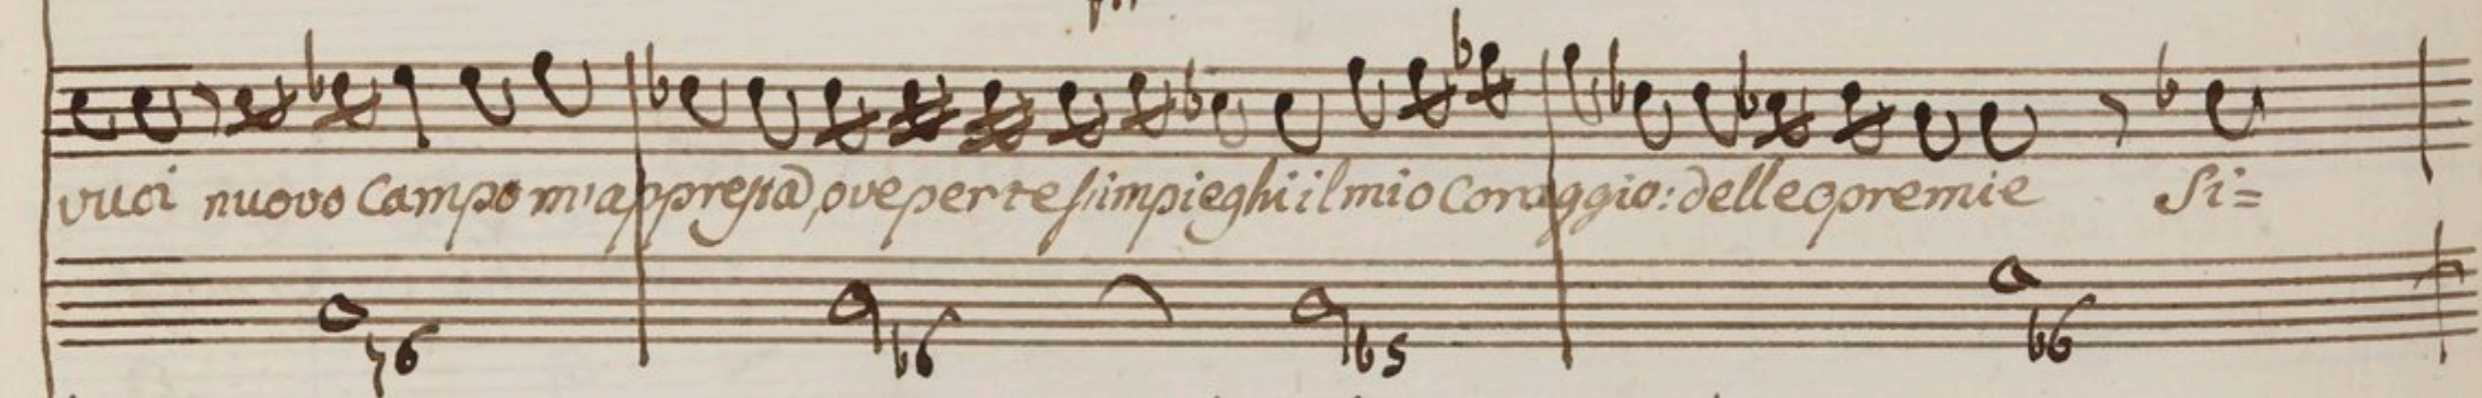 vuoi nuovo Campo m'appresta, ove per te s'impieghi il mio Coraggio: delle opre mie Si=
♮6 b6 b5 b6